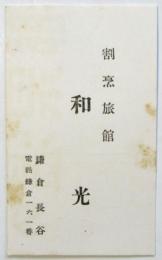 割烹旅館
和光
鎌倉長谷
電話鎌倉一六一番